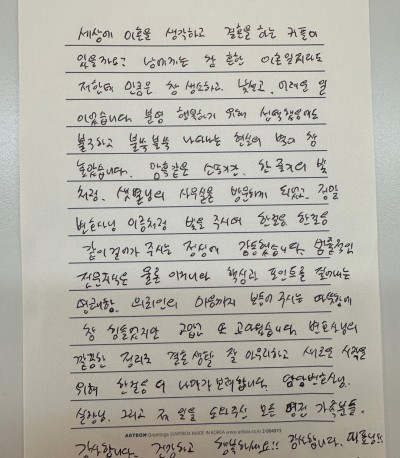 세상에 이혼을 생각하고 결혼을 하는 커플이
있을까요? 남에게는 참 흔한 이혼일지라도
저한테 만큼은 참 생소하고, 낯설고, 어려운 일
이었습니다. 분명 행복하기 위해 선택했음에도
불구하고 불쑥 불쑥 나타나는 현실의 벽이 참
높았습니다. 암흑같은 순간, 한 줄기의 빛
처럼, 샛별님의 사무실을 방문하게 되었고, 정말
변호사님 이름처럼 빛을 주시며 한걸음 한걸음
같이 걸어가 주시는 정성에 감동했습니다. 법률적인
전문지식은 물론 이거니와 핵심과 포인트를 짚어내는
명쾌함. 의뢰인의 마음까지 보듬어 주시는 따뜻함에
참 힘들었지만 고맙고 또 고마웠습니다. 변호사님의
깔끔한 정리로 결혼 생활 잘 마무리하고 새로운 시작을
위해 한걸음 더 나아가 보려합니다. 담당변호사님,
실장님, 그리고 저의 일을 도와주신 모든 가족분들.
ARTBOX Greetings ©ARTBOX MADE IN KOREA
감사합니다. 건강하고 행복하세요!! 감사합니다.